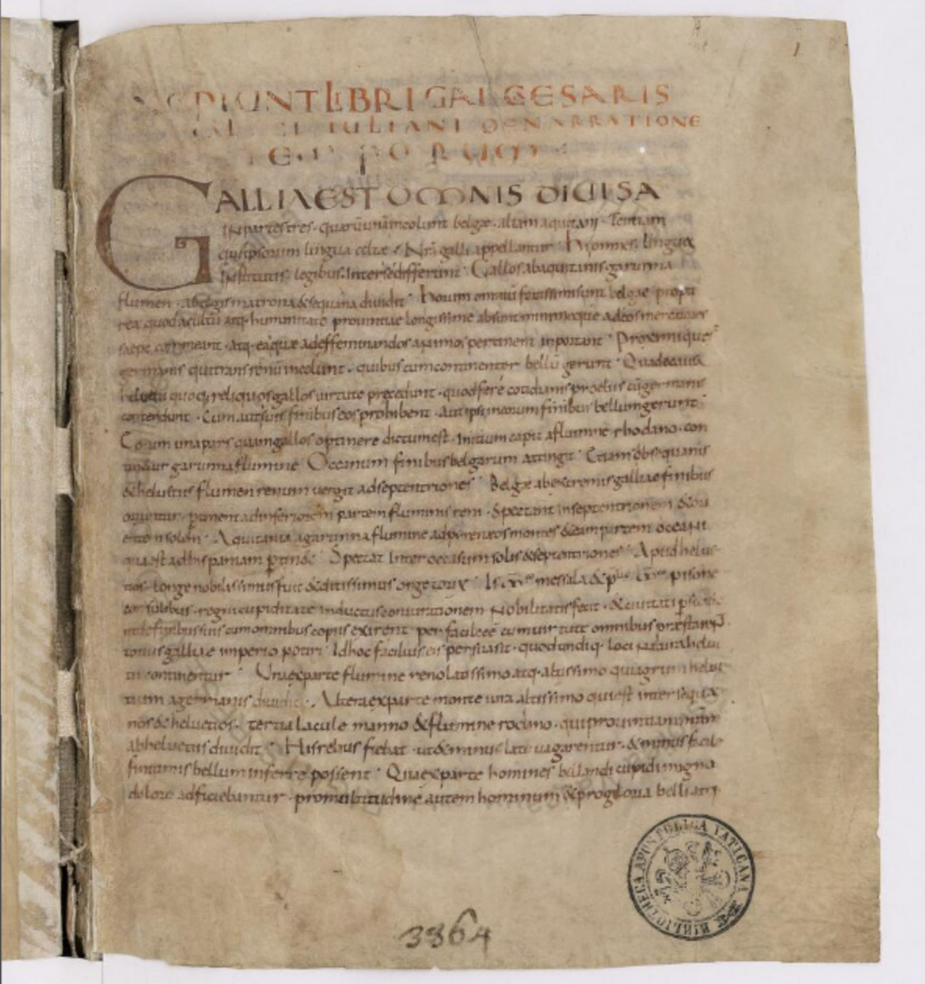 1
INCIPIUNT LIBRI GAI CESARIS
IULIANI DE NARRATIONE
TEMPORUM
GALLIA EST OMNIS DIUISA
in partes tres · quarū unam incolunt belgae · aliam aquitani · Tertiam
qui ipsorum lingua celtae · Nr̄a galli appellantur · Hi omnes lingua
Institutis · legibus · Inter se differunt · Gallos ab aquitanis garunna
flumen · a belgis matrona & sequana diuidit · Horum omniū fortissimi sunt belgae · propt
rea quod a cultu atq· humanitate prouintiae longissime absunt minimeque ad eos mercatores
saepe commeant · atq· ea quae ad effeminandos animos pertinent inportant · Proximique
germanis qui trans renū incolunt · quibuscum continenter bellū gerunt · Qua de causa
heluetii quoq· reliquos gallos uirtute precedunt · quod fere cotidianis proeliis cū germanis
contendunt · Cum aut suis finibus eos prohibent · aut ipsi in eorum finibus bellum gerunt ·
Eorum una pars quam gallos optinere dictum est · Initium capit a flumine rhodano · con
tin&ur garunna flumine · Oceanum finibus belgarum attingit · Etiam ab sequanis
& heluetiis flumen renum uergit ad septentriones · Belgae ab extremis galliae finibus
oriuntur · pertinent ad inferiorem partem fluminis reni · Spectant in septentrionem & ori
entem solem · Aquitania a garunna flumine ad pyreneos montes & eam partem oceani
quae est ad hispaniam pertin& · Spectat Inter occasum solis & septentriones · Apud helue
tios longe nobilissimus fuit & ditissimus orgetorix · Is · M̄ · messala & p · M̄ · pisone
cos̄sulibus · regni cupiditate inductus coniurationem Nobilitatis fecit · & ciuitati persuasit
ut de finibus suis cum omnibus copiis exirent · per facile eē cum uirtute omnibus praestarent
totius galliae imperio potiri · Id hoc facilius eis persuasit · quod undiq· loci natura helue
tii continentur · Una ex parte flumine reno latissimo atq· altissimo qui agrum helue
tium a germanis diuidit · Altera ex parte monte iura altissimo qui est inter sequa
nos & heluetios · tertia lacu lemanno & flumine rodano · qui prouintiam nr̄am
ab heluetiis diuidit · His rebus fiebat · ut & minus late uagarentur · & minus facile
finitimis bellum inferre possent · Qua ex parte homines bellandi cupidi magno
dolore adficiebantur · pro multitudine autem hominum & pro gloria belli atq·
BIBLIOTHECA APOSTOLICA VATICANA
3864